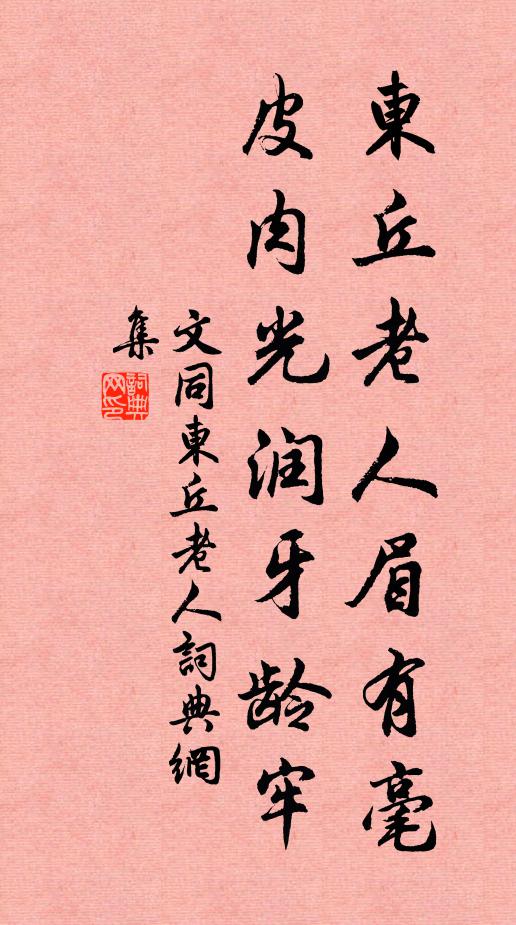 東丘老人眉有毫
皮肉光润牙龄牢
文同東丘老人詞典網
集
詞典
网印